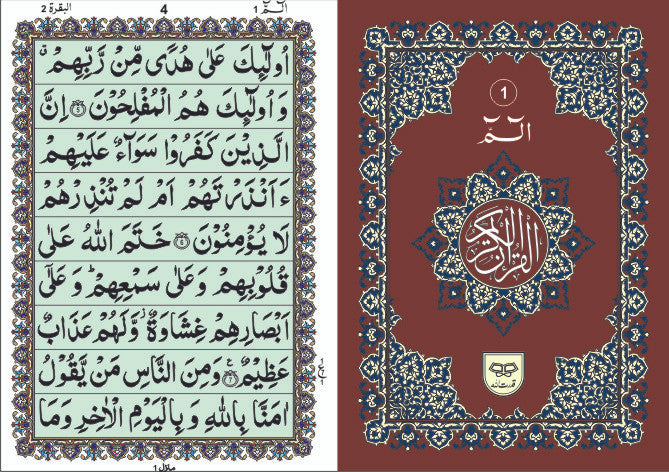 البقرة 2
4
الٓمّٓ 1
اُولٰٓئِكَ عَلٰی هُدًی مِّنْ رَّبِّهِمْ ۗ
وَ اُولٰٓئِكَ هُمُ الْمُفْلِحُوْنَ ﴿۵﴾ اِنَّ
الَّذِیْنَ كَفَرُوْا سَوَآءٌ عَلَیْهِمْ
ءَاَنْذَرْتَهُمْ اَمْ لَمْ تُنْذِرْهُمْ
لَا یُؤْمِنُوْنَ ﴿۶﴾ خَتَمَ اللّٰهُ عَلٰی
قُلُوْبِهِمْ وَ عَلٰی سَمْعِهِمْ ؕ وَ عَلٰۤی
اَبْصَارِهِمْ غِشَاوَةٌ ؗ وَّ لَهُمْ عَذَابٌ
عَظِیْمٌ ﴿۷﴾ وَ مِنَ النَّاسِ مَنْ یَّقُوْلُ
اٰمَنَّا بِاللّٰهِ وَ بِالْیَوْمِ الْاٰخِرِ وَ مَا
منزل 1
1
الٓمّٓ
القرآن الكريم
قدرت اللہ